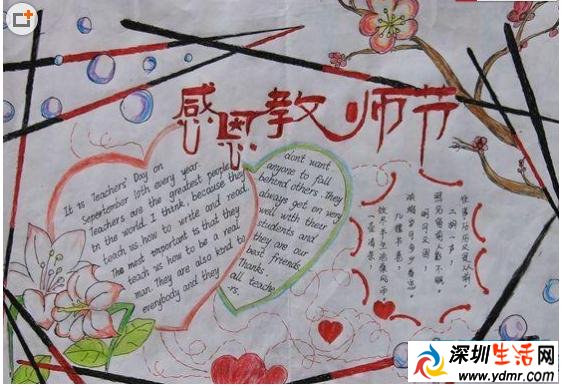 感恩教师节
It is Teachers' Day on
Sepertember 10th every year.
Teachers are the greatest people
in the world. I think, because they
teach us how to write and read.
The most important is that they
teach us how to be a real
man. They are also kind to
everybody and they
dont want
anyone to fall
behind others. They
always get on very
well with their
students and
they are our
best friends.
Thanks
all teache
-rs.
深圳生活网
www.ydmr.com